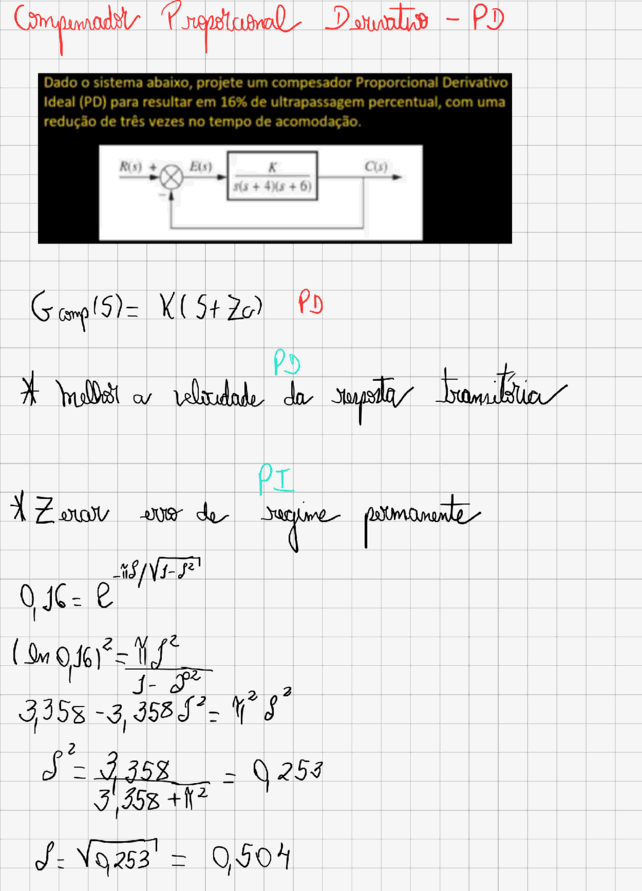 Compensador Proporcional Derivativo - PD
Dado o sistema abaixo, projete um compesador Proporcional Derivativo
Ideal (PD) para resultar em 16% de ultrapassagem percentual, com uma
redução de três vezes no tempo de acomodação.
R(s) + E(s) K C(s)
s(s + 4)(s + 6)
−
Gcomp(S) = K(S+Zc) PD
PD
* Melhor a velocidade da resposta transitória
PI
* Zerar erro de regime permanente
0,16 = e^-πζ/√1-ζ²
(ln 0,16)² = πζ² / 1-ζ²
3,358 - 3,358ζ² = π² ζ²
ζ² = 3,358 / 3,358 + π² = 0,253
ζ = √0,253 = 0,504